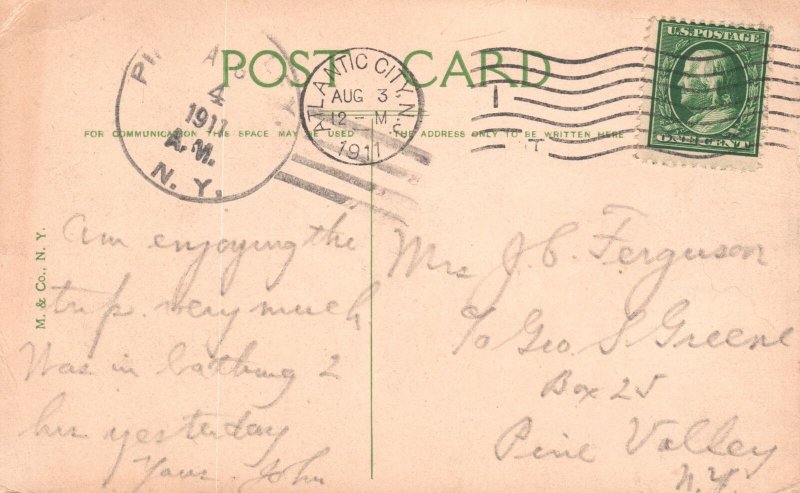 POST CARD
FOR COMMUNICATION THIS SPACE MAY BE USED
THE ADDRESS ONLY TO BE WRITTEN HERE
AUG
4
1911
A.M.
N. Y.
ATLANTIC CITY, N.J.
AUG 3
12 - M
1911
U.S. POSTAGE
ONE CENT
M. & Co., N. Y.
Am enjoying the
trip very much
Was in bathing 2
hrs yesterday
Yours John
Mrs J. C. Ferguson
c/o Geo S Greene
Box 25
Pine Valley
N.Y.